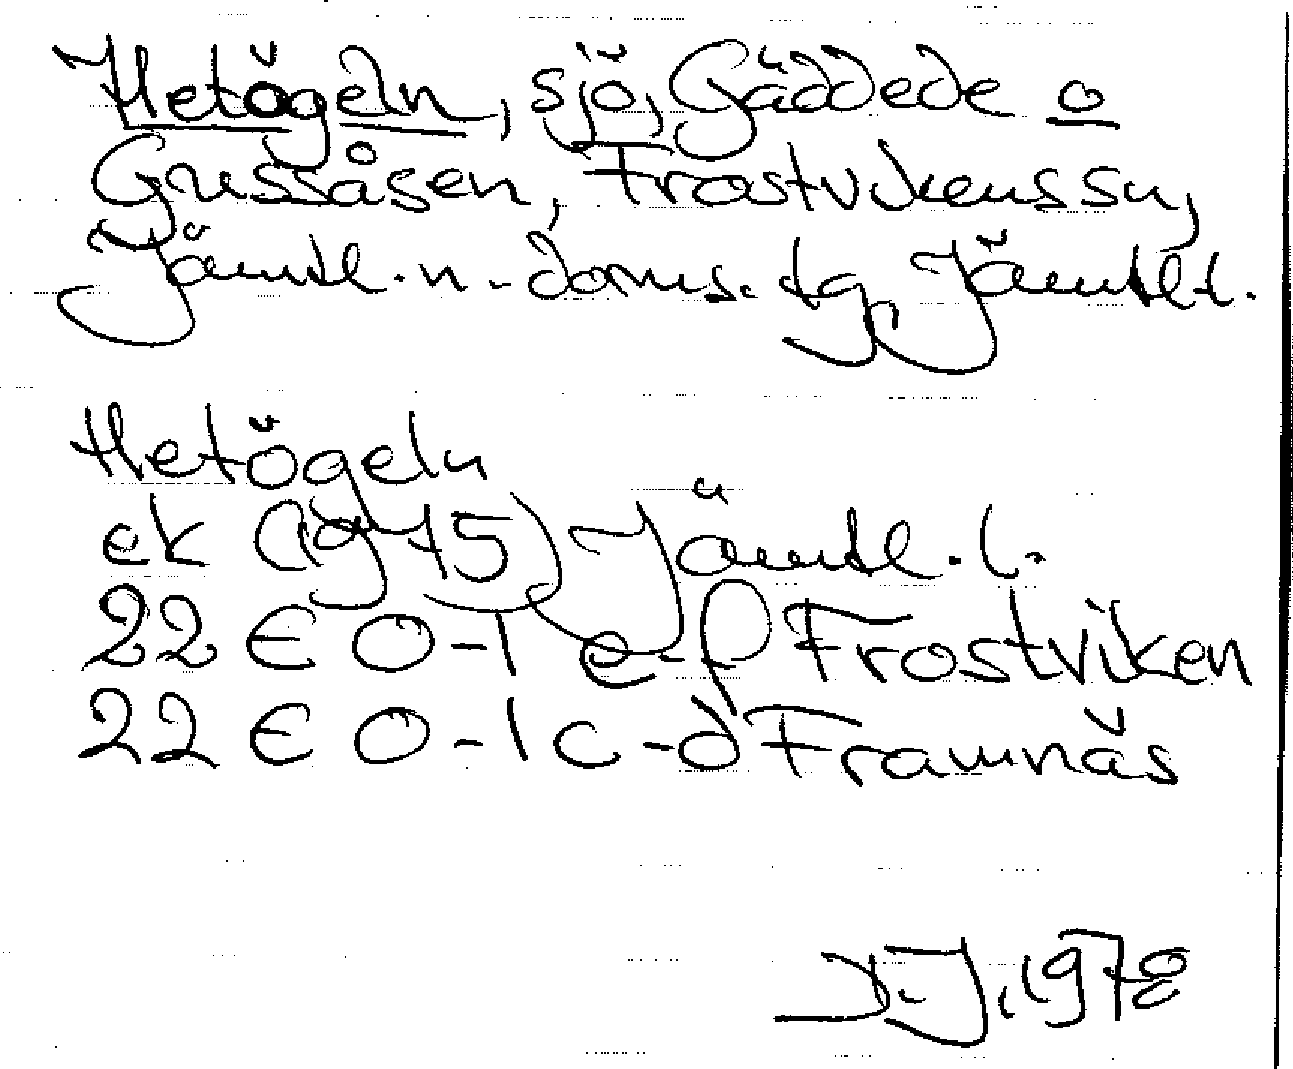 Hetögeln, sjö, Gäddede o
Gussåsen, Frostvikens sn,
Jämtl. n. doms. tg, Jämtl. l.
Hetögeln
ek (1975) Jämtl. l.
22 E 0-1 e-f Frostviken
22 E 0-1 c-d Framnäs
J., 1978